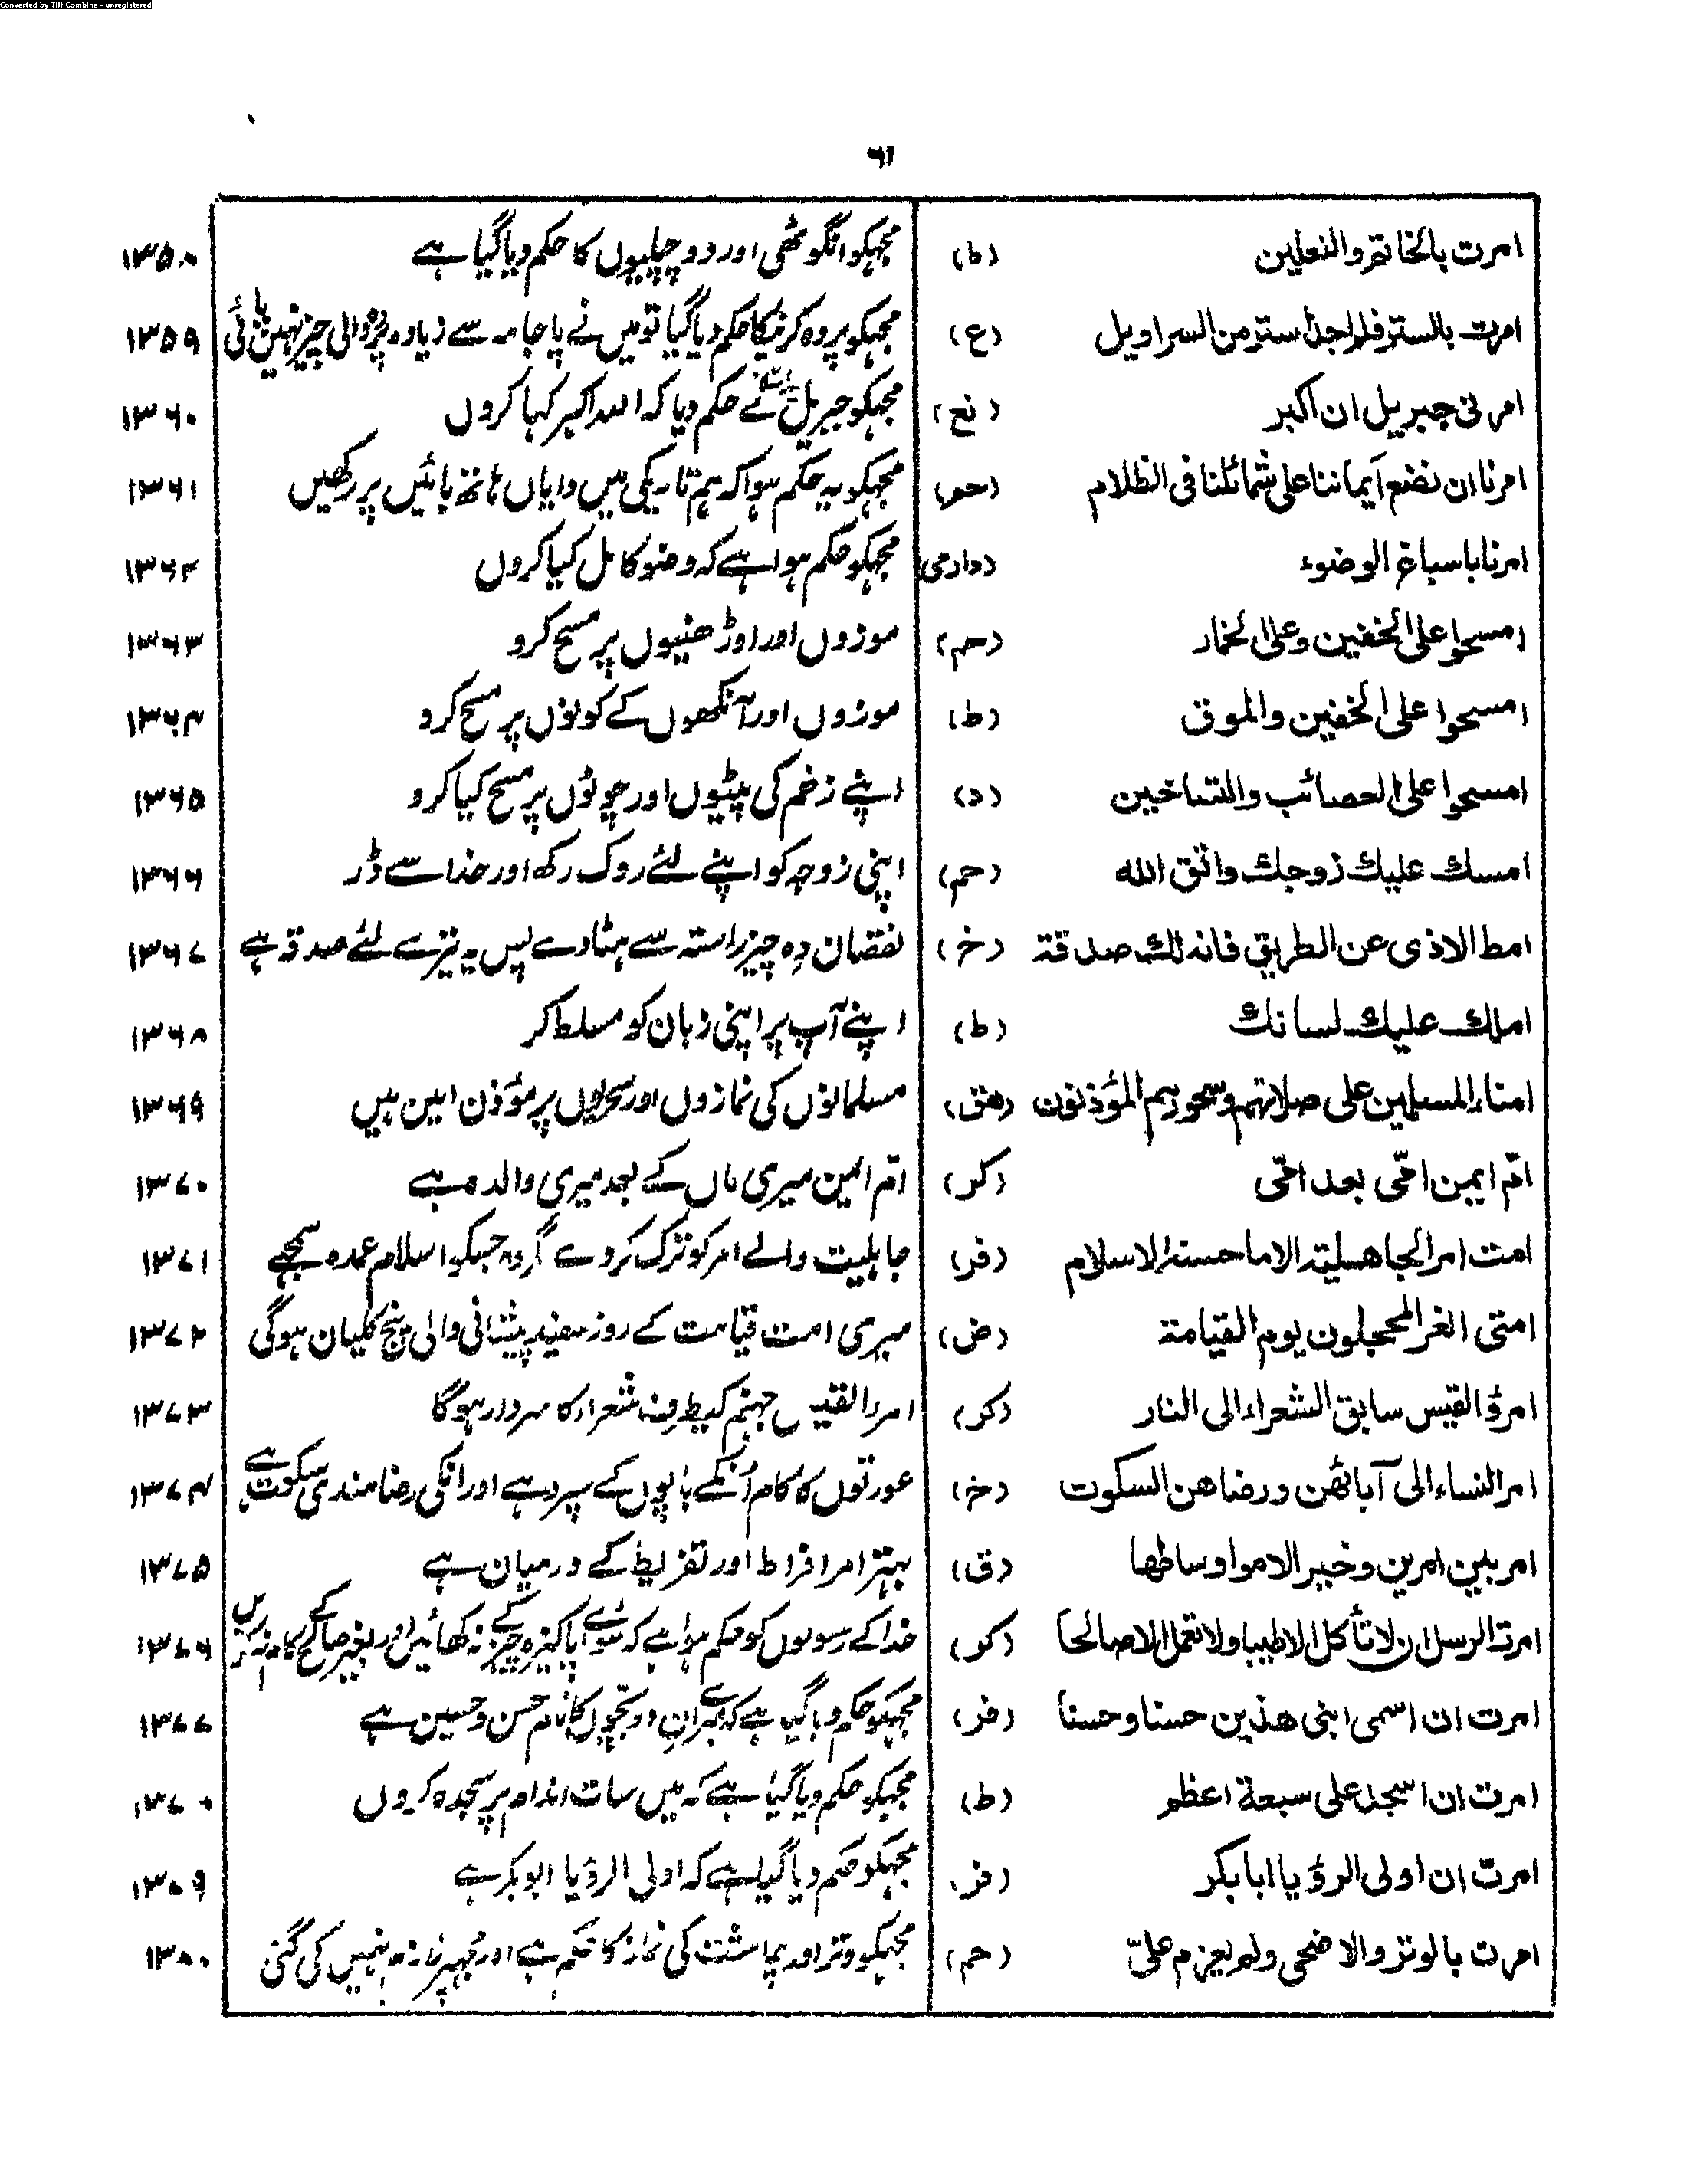 Converted by Tiff Combine - unregistered
٦١
امرت بالخاتم والنعلین (ط) مجہکو انگوٹھی اور دو چپلیوں کا حکم دیا گیا ہے ١٣٥٨
امرت بالستر فلم اجد استر من السراویل (ع) مجہکو پردہ کرنیکا حکم دیا گیا تو میں نے پاجامہ سے زیادہ پردہ والی چیز نہیں پائی ١٣٥٩
امرنی جبریل ان اکبر (نع) مجہکو جبریل نے حکم دیا کہ اللہ اکبر کہا کروں ١٣٦٠
امرنا ان نضع أیماننا علی شمائلنا فی الظلام (حم) مجہکو یہ حکم ہوا کہ ہم تاریکی میں دایاں ہاتھ بائیں پر رکھیں ١٣٦١
امرنا باسباغ الوضوء (دارمی) مجہکو حکم ہوا ہے کہ وضو کامل کیا کروں ١٣٦٢
امسحوا علی الخفین وعلی الخمار (حم) موزوں اور اوڑھنیوں پر مسح کرو ١٣٦٣
امسحوا علی الخفین والموق (ط) موزوں اور آنکھوں کے کونوں پر مسح کرو ١٣٦٤
امسحوا علی العصائب والتساخین (د) اپنے زخم کی پٹیوں اور چوٹوں پر مسح کیا کرو ١٣٦٥
امسك علیك زوجك واتق الله (حم) اپنی زوجہ کو اپنے لئے روک رکھ اور خدا سے ڈر ١٣٦٦
امط الاذی عن الطریق فانه لك صدقة (خ) نقصان دِہ چیز راستہ سے ہٹا دے پس یہ تیرے لئے صدقہ ہے ١٣٦٧
املك علیك لسانك (ط) اپنے آپ پر اپنی زبان کو مسلط کر ١٣٦٨
امناء المسلمین علی صلاتهم وسحورهم المؤذنون (هق) مسلمانوں کی نمازوں اور سحروں پر مؤذن امین ہیں ١٣٦٩
امّ ایمن امّی بعد امّی (کر) امّ ایمن میری ماں کے بعد میری والدہ ہے ١٣٧٠
امت امر الجاهلیة الا ما حسنه الاسلام (فر) جاہلیت والے امر کو ترک کر دے گر وہ جسکو اسلام عمدہ سمجہے ١٣٧١
امتی الغر المحجلون یوم القیامة (ض) میری امت قیامت کے روز سفید پیشانی والی پنج کلیان ہوگی ١٣٧٢
امرؤ القیس سابق الشعراء الی النار (کر) امرؤ القیس جہنم کیطرف شعراء کا سردار ہوگا ١٣٧٣
امر النساء الی آبائهن ورضاهن السکوت (خ) عورتوں کا کام اُنکے باپوں کے سپرد ہے اور انکی رضامندی سکوت ہے ١٣٧٤
امر بین امرین وخیر الامور اوساطها (ق) بہتر امر افراط اور تفریط کے درمیان ہے ١٣٧٥
امرت الرسل ان لا تأکل الا طیبا ولا تعمل الا صالحا (کر) خدا کے رسولوں کو حکم ہوا ہے کہ سوائے پاکیزہ چیز کے نہ کھائیں اور بغیر صالح کے کام نہ کریں ١٣٧٦
امرت ان اسمی ابنی هذین حسنا وحسنا (فر) مجہکو حکم دیا گیا ہے کہ میرے ان دو بچّوں کا نام حسن و حسین ہے ١٣٧٧
امرت ان اسجد علی سبعة اعظم (ط) مجہکو حکم دیا گیا ہے کہ میں سات اندام پر سجدہ کروں ١٣٧٨
امرت ان اولی الرؤیا ابا بکر (فر) مجہکو حکم دیا گیا ہے کہ اولی الرؤیا ابوبکر ہے ١٣٧٩
امرت بالوتر والاضحی ولم یعزم علیّ (حم) مجہکو وتر اور چاشت کی نماز کا حکم ہے اور مُہپر نہیں کی گئی ١٣٨٠